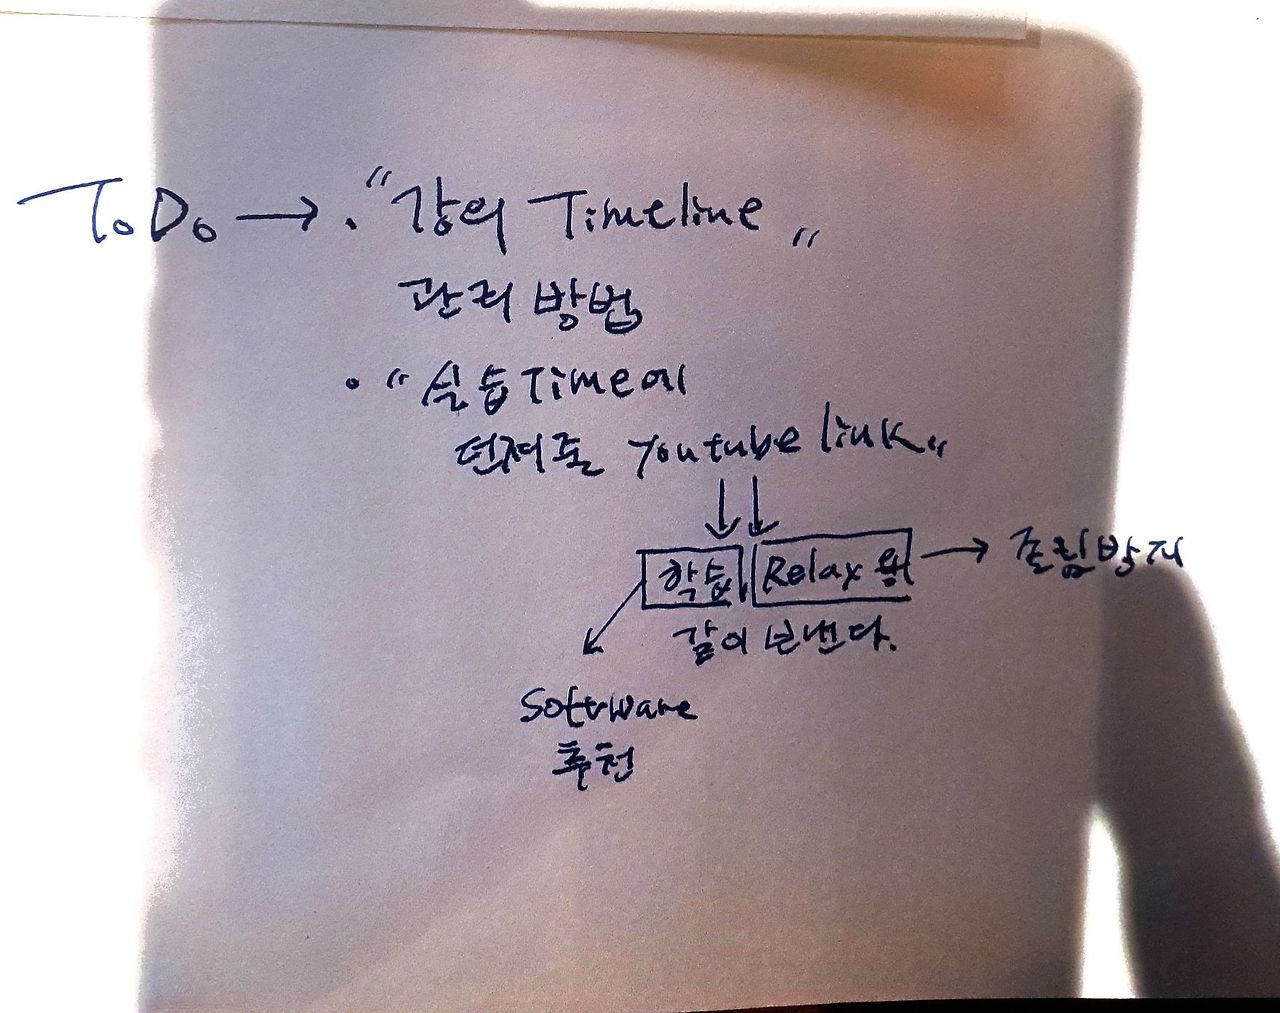 ToDo → · "강의 Timeline"
관리 방법
· "실습 Time에
던져줄 Youtube link"
↓↓
학습 Relax 용 → 졸림방지
같이 보낸다.
Software
추천